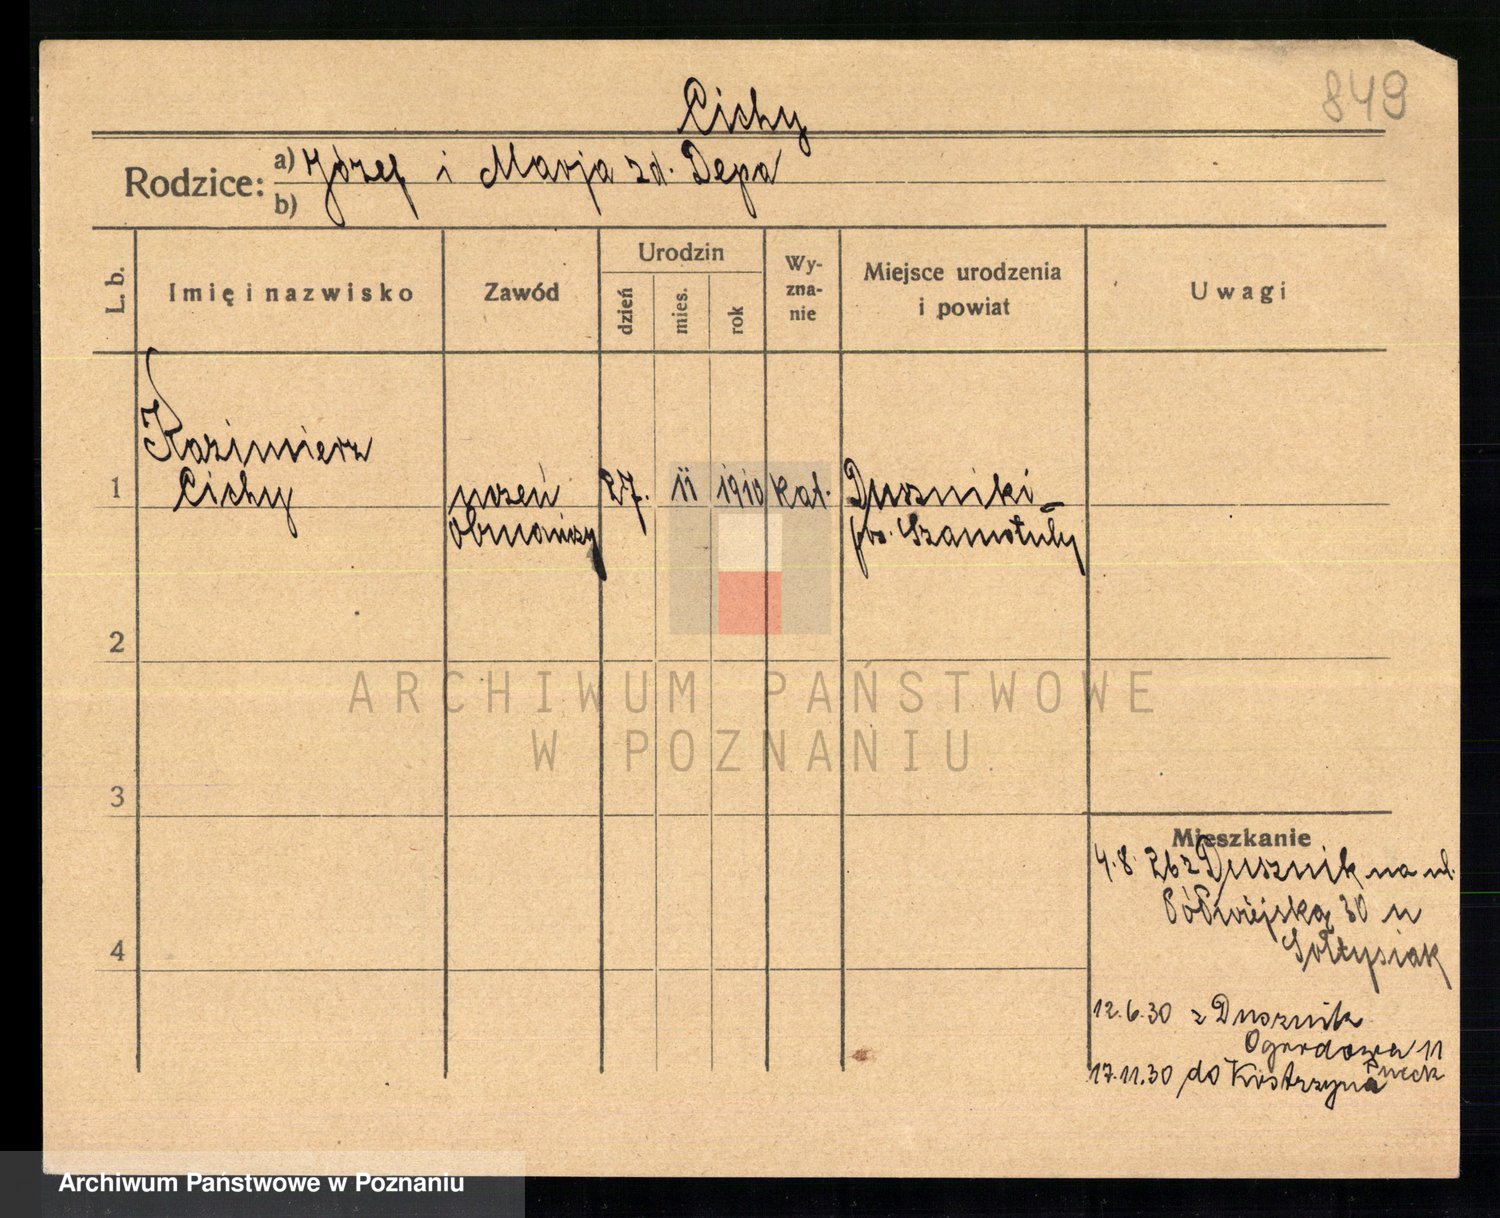 849
Cichy
Rodzice: a) Józef i Marja zd. Depa
b)
L. b.
Imię i nazwisko
Zawód
Urodzin
dzień
mies.
rok
Wy-
zna-
nie
Miejsce urodzenia
i powiat
Uwagi
Kazimierz
1 Cichy uczeń 27. 11 1910 kat. Duszniki
pow. Szamotuły
2
3
4
ARCHIWUM PAŃSTWOWE
W POZNANIU
Mieszkanie
4.8.26 z Dusznik na ul.
Półwiejską 30 u
Sołtysiak
12.6.30 z Dusznik
Ogrodowa 11
17.11.30 do Kostrzyna
Archiwum Państwowe w Poznaniu